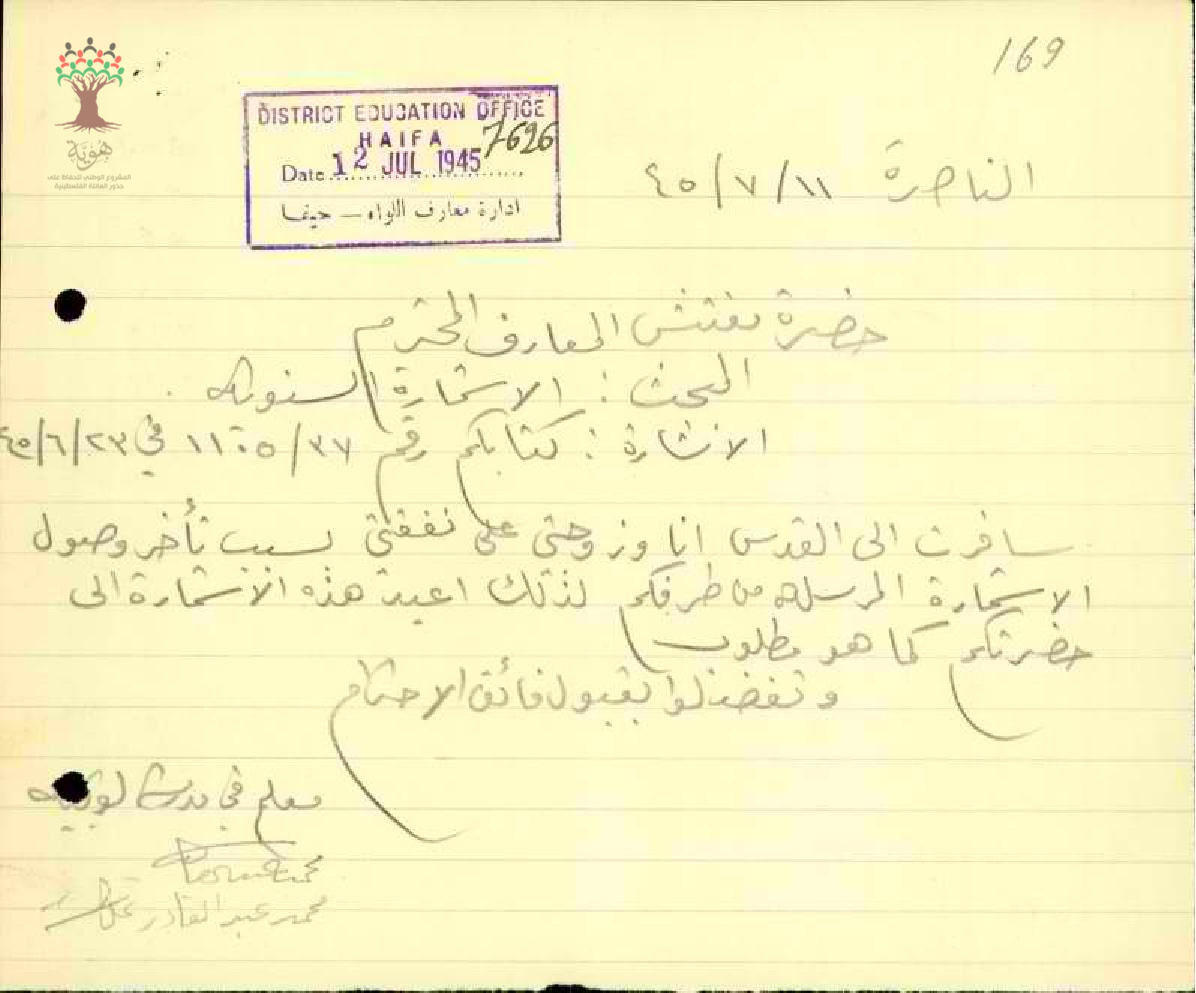 169
هوية
المشروع الوطني للحفاظ على
جذور العائلة الفلسطينية
DISTRICT EDUCATION OFFICE
HAIFA
7626
Date 12 JUL 1945
ادارة معارف اللواء — حيفا
الناصرة ١١/٧/٤٥
حضرة مفتش المعارف المحترم
البحث : الاستمارة السنوية
الاشارة : كتابكم رقم ٣٧/١١٠٥ في ٢٣/٦/٤٥
سافرت الى القدس انا وزوجتي على نفقتي بسبب تأخر وصول
الاستمارة المرسلة من طرفكم لذلك اعيد هذه الاستمارة الى
حضرتكم كما هو مطلوب
وتفضلوا بقبول فائق الاحترام
معلم في مدرسة لوبية
محمد عبد القادر